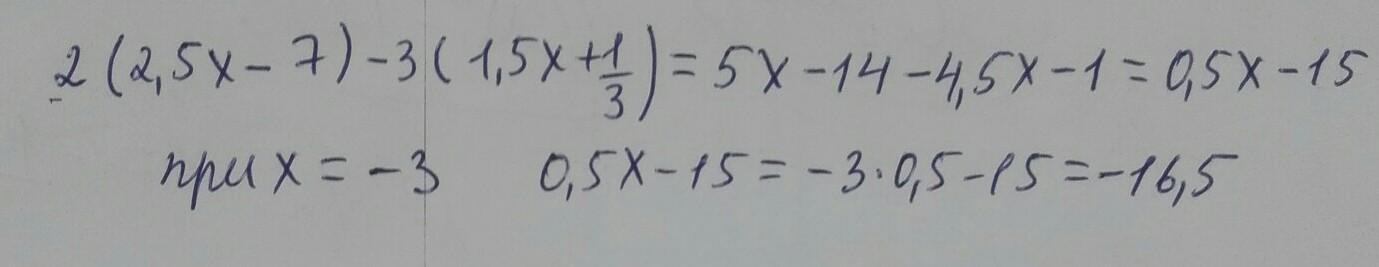 2(2,5x-7)-3(1,5x+1/3)=5x-14-4,5x-1=0,5x-15
при x=-3 0,5x-15=-3·0,5-15=-16,5